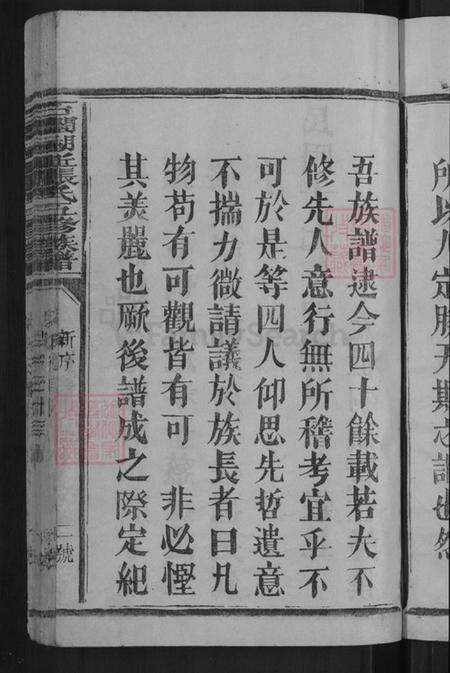 所以人定勝天斯之謂也然
吾族譜逮今四十餘載若夫不
修先人意行無所稽考宜乎不
可於是等四人仰思先哲遺意
不揣力微請議於族長者曰凡
物苟有可觀皆有可 非必慳
其美麗也厥後譜成之際定紀
張氏五修族譜
新序
二號